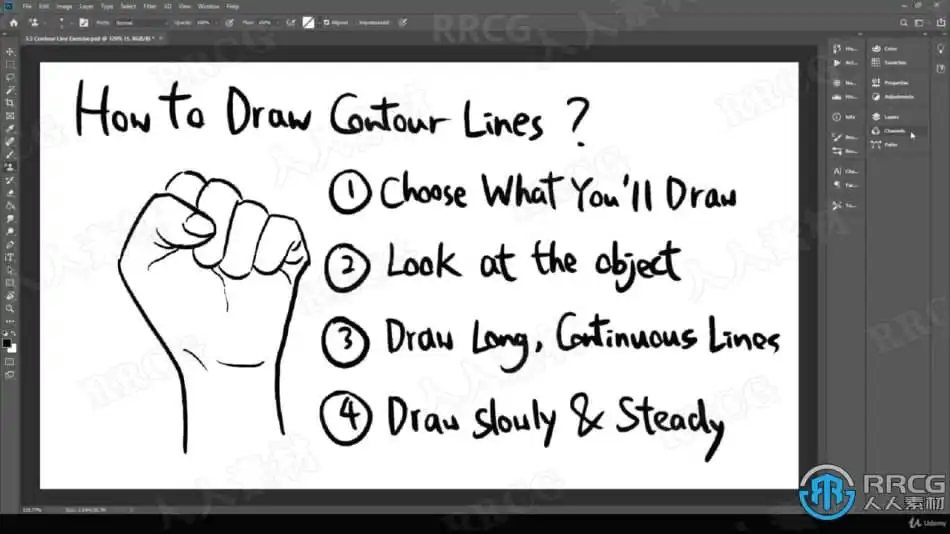 File Edit Image Layer Type Select Filter 3D View Window Help
Mode: Normal Opacity: 100% Flow: Aligned
How to Draw Contour Lines ?
① Choose What You'll Draw
② Look at the object
③ Draw Long, Continuous Lines
④ Draw Slowly & Steady
Color
Swatches
Properties
Adjustments
Info
Layers
Channels
Paths
RRCG
人人素材
Udemy